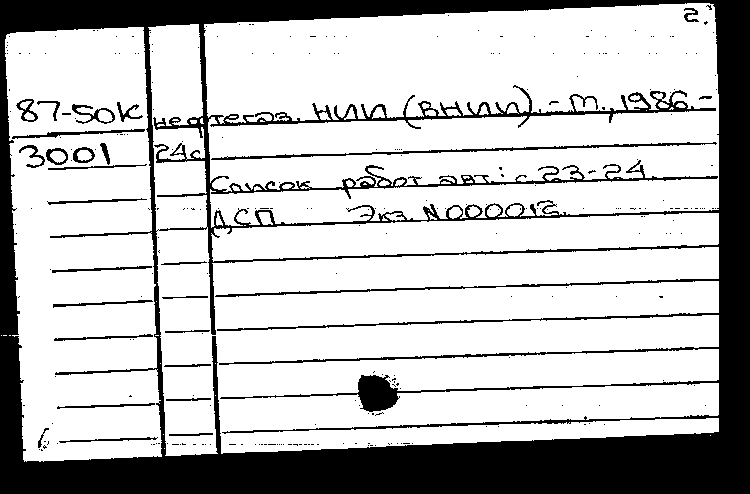 2.
87-50К нефтегаз. НИИ (ВНИИ). - М., 1986. -
3001 24с
Список работ авт.: с 23-24.
ДСП. Экз. N000012.
6